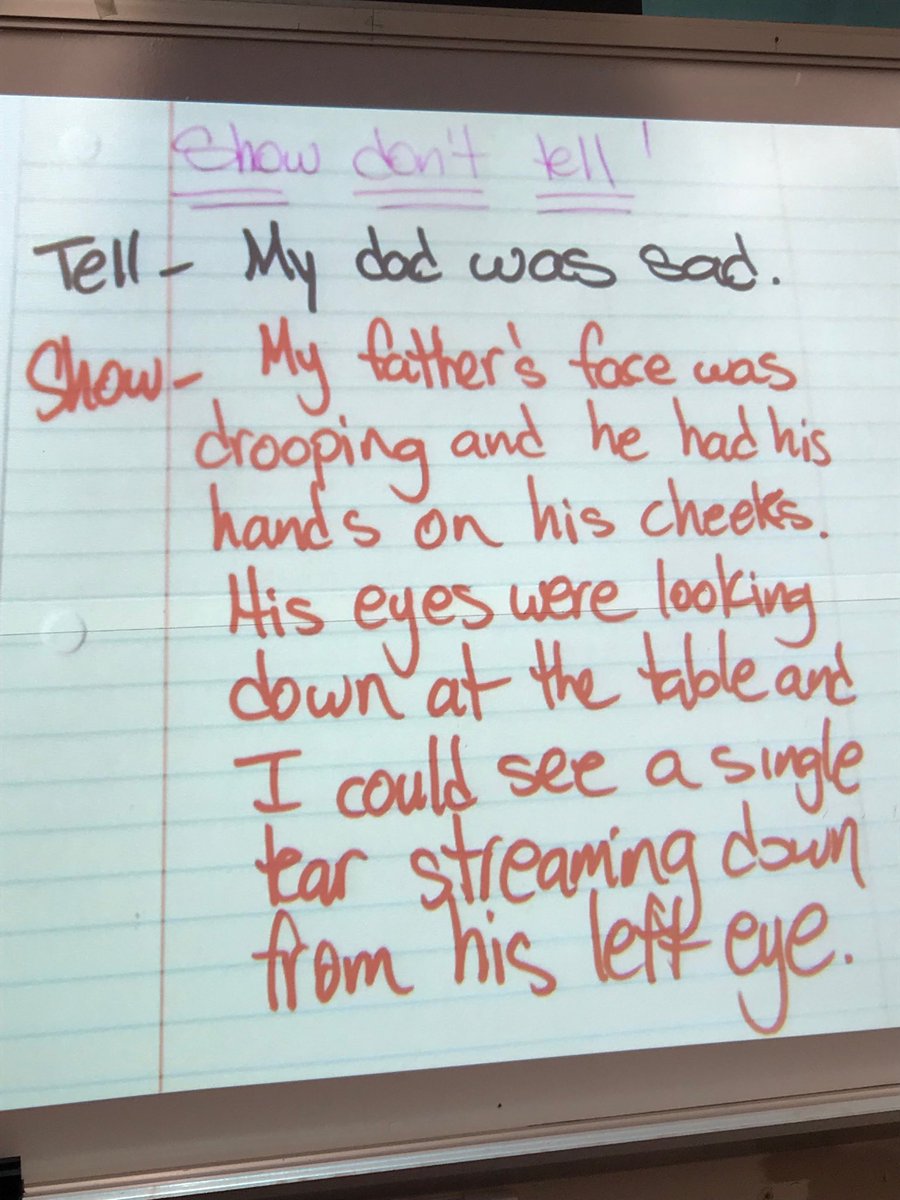 Show don't tell!
Tell - My dad was sad.
Show - My father's face was
drooping and he had his
hands on his cheeks.
His eyes were looking
down at the table and
I could see a single
tear streaming down
from his left eye.